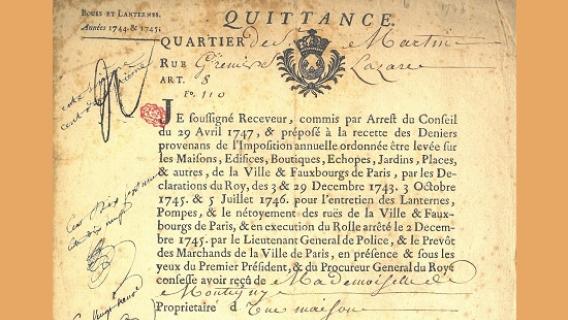 BOUES ET LANTERNES.
Années 1744. & 1745.
QUITTANCE.
QUARTIER de St Martin
RUE Grenier St Lazare
ART. 8
Fo. 110
JE soussigné Receveur, commis par Arrest du Conseil
du 29 Avril 1747, & préposé à la recette des Deniers
provenans de l'Imposition annuelle ordonnée être levée sur
les Maisons, Edifices, Boutiques, Echopes, Jardins, Places,
& autres, de la Ville & Fauxbourgs de Paris, par les De-
clarations du Roy, des 3 & 29 Decembre 1743. 3 Octobre
1745. & 5 Juillet 1746. pour l'entretien des Lanternes,
Pompes, & le nétoyement des ruës de la Ville & Faux-
bourgs de Paris, & en execution du Rolle arrêté le 2 Decem-
bre 1745. par le Lieutenant General de Police, & le Prevôt
des Marchands de la Ville de Paris, en présence & sous les
yeux du Premier Président, & du Procureur General du Roy,
confesse avoir reçû de Mademoiselle de
Montigny
Proprietaire d'une maison